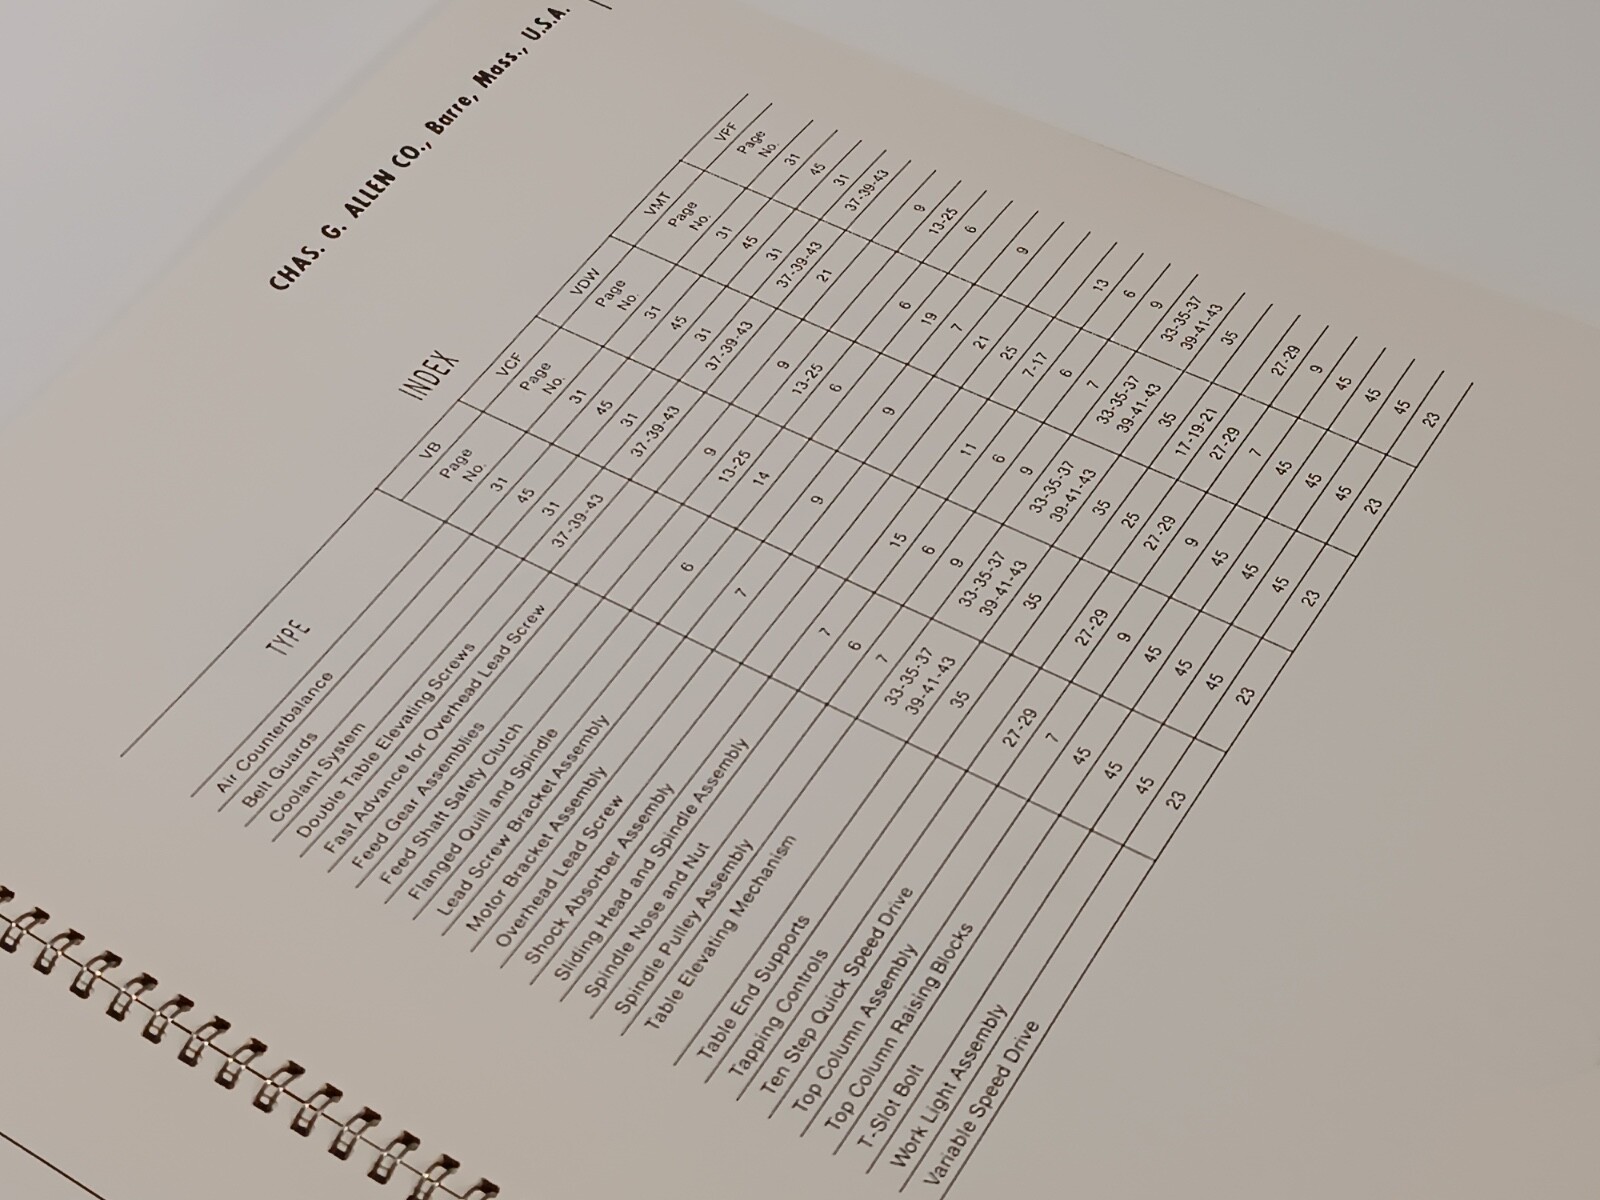 CHAS. G. ALLEN CO., Barre, Mass., U.S.A.
INDEX
TYPE VB VCF VDW VMT VPF
Page Page Page Page Page
No. No. No. No. No.
Air Counterbalance 31 31 31 31 31
Belt Guards 45 45 45 45 45
Coolant System 31 31 31 31 31
Double Table Elevating Screws 37-39-43 37-39-43 37-39-43 37-39-43 37-39-43
Fast Advance for Overhead Lead Screw 21
Feed Gear Assemblies 9 9 9
Feed Shaft Safety Clutch 13-25 13-25 13-25
Flanged Quill and Spindle 6 14 6 6 6
Lead Screw Bracket Assembly 19
Motor Bracket Assembly 7 9 9 7 9
Overhead Lead Screw 21
Shock Absorber Assembly 25
Sliding Head and Spindle Assembly 7 15 11 7-17 13
Spindle Nose and Nut 6 6 6 6 6
Spindle Pulley Assembly 7 9 9 7 9
Table Elevating Mechanism 33-35-37 33-35-37 33-35-37 33-35-37 33-35-37
39-41-43 39-41-43 39-41-43 39-41-43 39-41-43
Table End Supports 35 35 35 35 35
Tapping Controls 25 17-19-21
Ten Step Quick Speed Drive 27-29 27-29 27-29 27-29 27-29
Top Column Assembly 7 9 9 7 9
Top Column Raising Blocks 45 45 45 45 45
T-Slot Bolt 45 45 45 45 45
Work Light Assembly 45 45 45 45 45
Variable Speed Drive 23 23 23 23 23